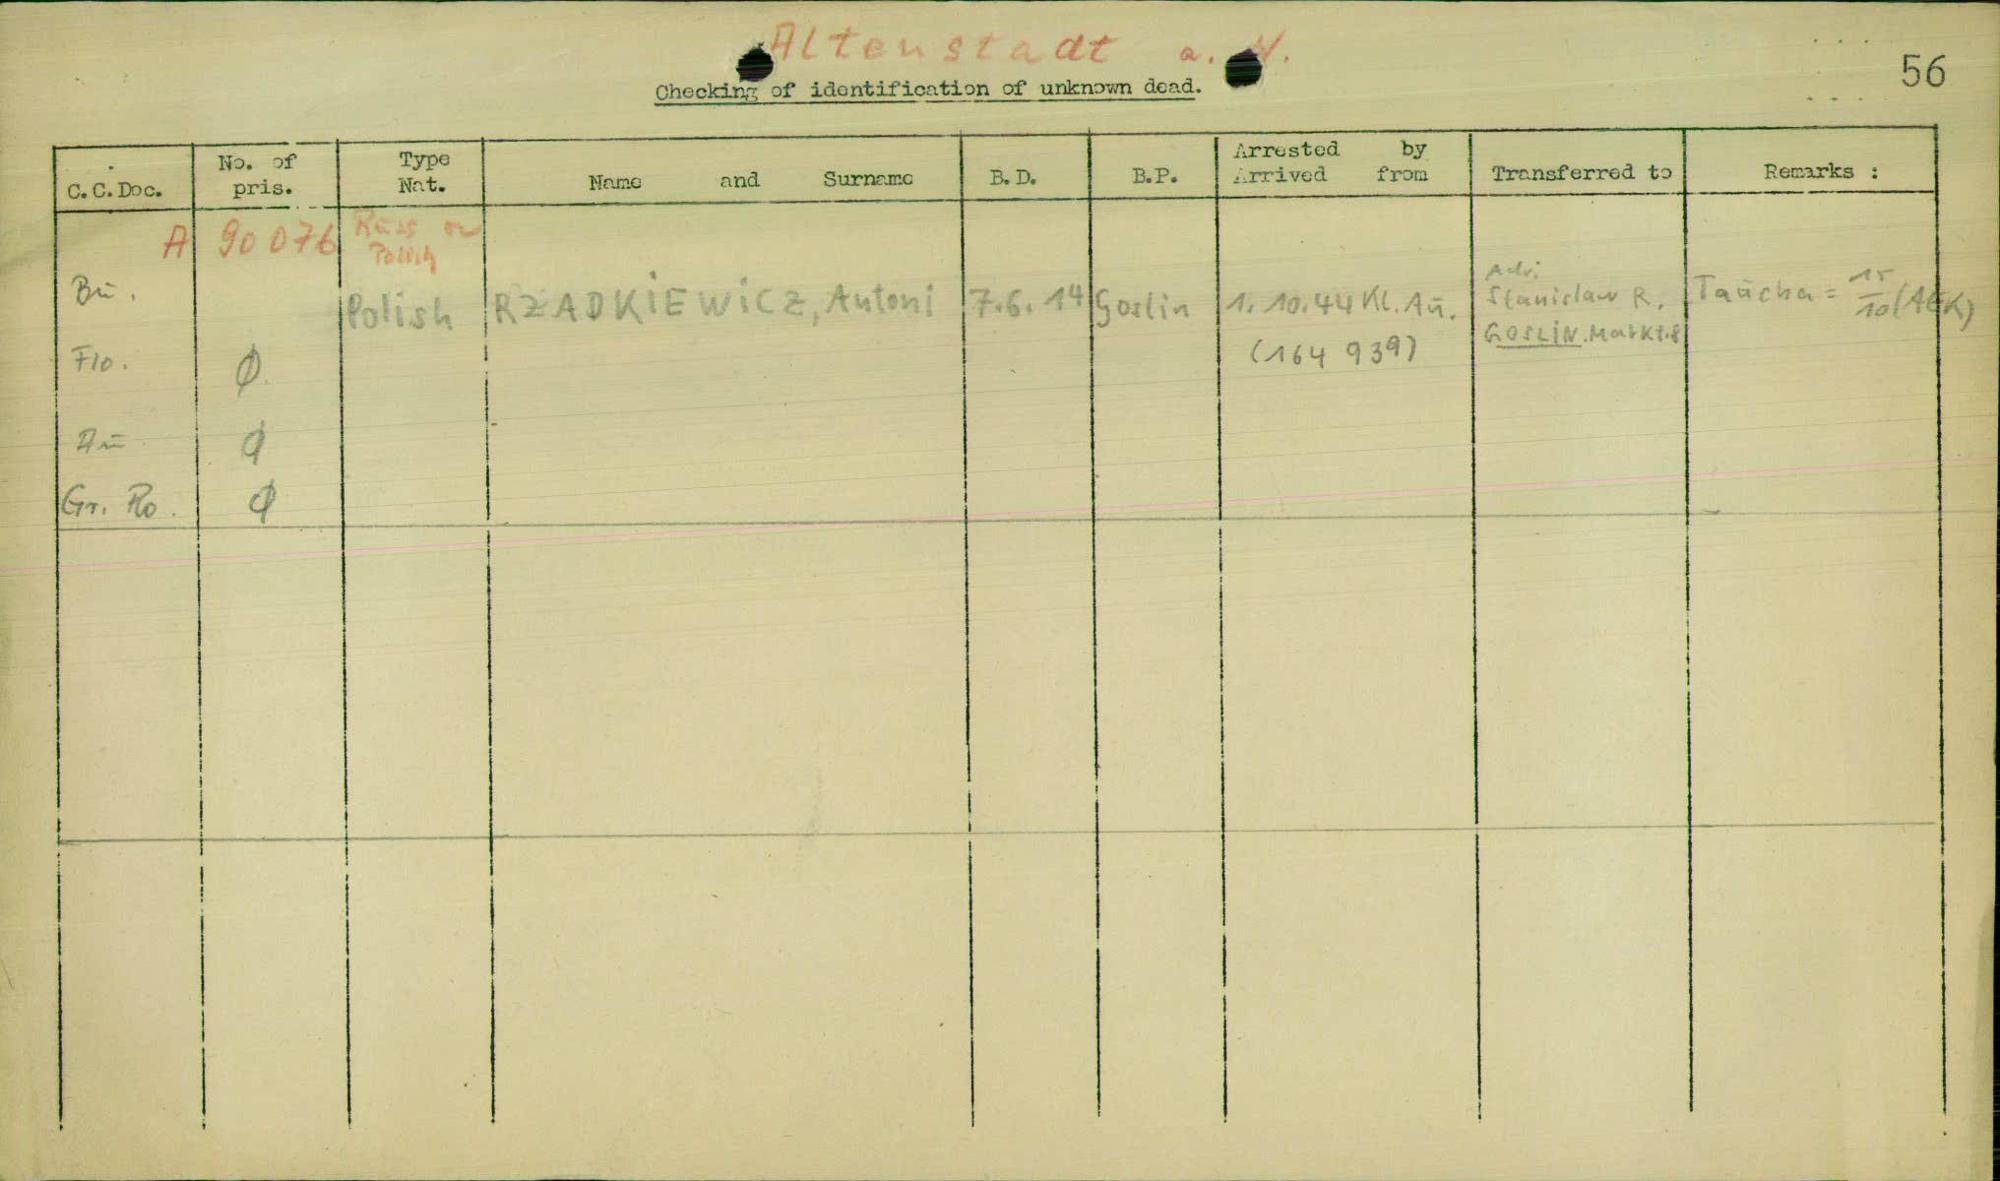 Altenstadt a. N.
56
Checking of identification of unknown dead.
C.C.Doc. No. of pris. Type Nat. Name and Surname B.D. B.P. Arrested by Arrived from Transferred to Remarks :
A 90 076 Russ or Polish
Bū. Polish RZADKIEWICZ, Antoni 7.6.14 Goslin 1.10.44 Kl. Aū. (164 939) Adr. Stanislaw R. GOSLIN. Markt. 8 Taūcha = 15/10 (AEK)
Flo. Ø
Aū Ø
Gr. Ro. Ø